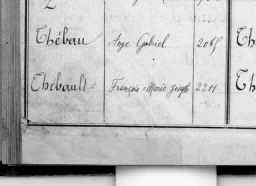 Thébau Ange Gabriel 2065
Thebault François Marie Joseph 2201
Th
Th